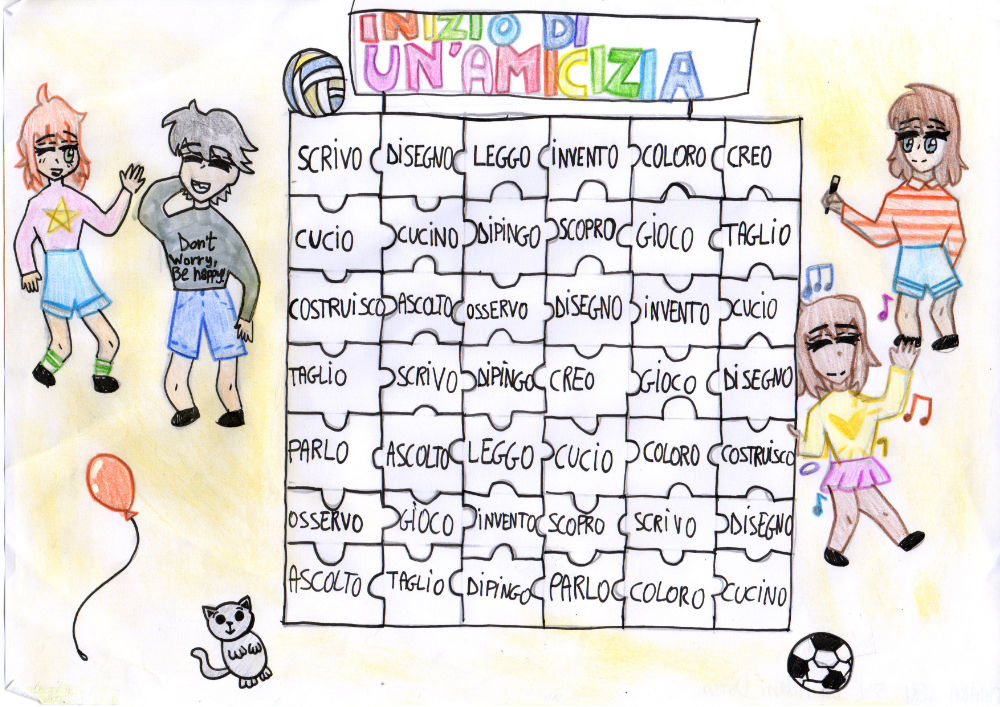 INIZIO DI
UN'AMICIZIA
SCRIVO DISEGNO LEGGO INVENTO COLORO CREO
CUCIO CUCINO DIPINGO SCOPRO GIOCO TAGLIO
COSTRUISCO ASCOLTO OSSERVO DISEGNO INVENTO CUCIO
TAGLIO SCRIVO DIPINGO CREO GIOCO DISEGNO
PARLO ASCOLTO LEGGO CUCIO COLORO COSTRUISCO
OSSERVO GIOCO INVENTO SCOPRO SCRIVO DISEGNO
ASCOLTO TAGLIO DIPINGO PARLO COLORO CUCINO
Don't
Worry,
Be happy!